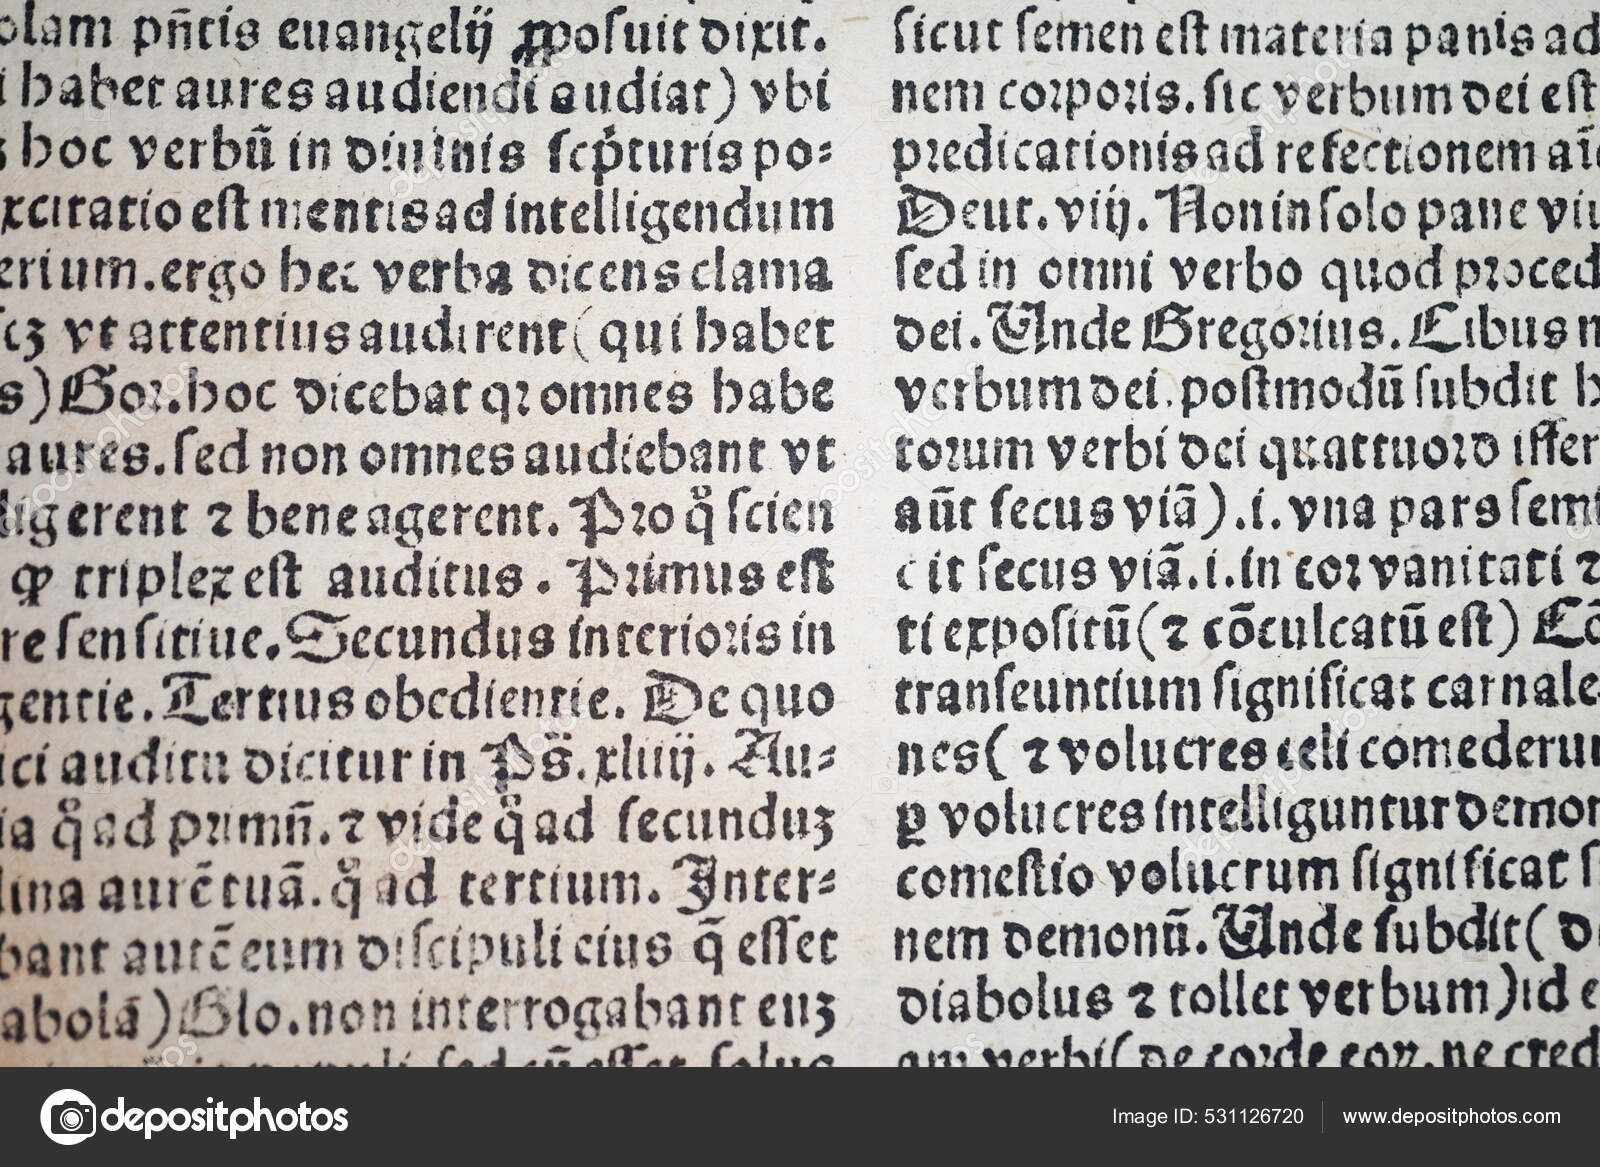 olam pn̄tis euangelij ꝓposuit dixit.
i habet aures audiendi audiat) vbi
ꝫ hoc verbū in diuinis scpturis po⸗
xcitatio est mentis ad intelligendum
erium. ergo hec verba dicens clama
scꝫ vt attentius audirent (qui habet
s) Gor. hoc dicebat qꝛ omnes habe
aures. sed non omnes audiebant vt
ligerent ⁊ bene agerent. Pro qͦ scien
ꝙ triplex est auditus. Primus est
re sensitiue. Secundus interioris in
gentie. Tertius obedientie. De quo
ici auditu dicitur in Ps. xliiij. Au⸗
ia qͦ ad primū. ⁊ vide qͦ ad secunduꝫ
lina aurē tuā. qͦ ad tertium. Inter⸗
bant autē eum discipuli eius q̄ esset
abolā) Glo. non interrogabant euꝫ
sicut semen est materia panis ad
nem corporis. sic verbum dei est
predicationis ad refectionem aīe
Deut. viij. Non in solo pane viu
sed in omni verbo quod proced
dei. Unde Gregorius. Cibus m
verbum dei. postmodū subdit h
torum verbi dei quattuor differ
aūt secus viā). i. vna pars semi
cit secus viā. i. in cor vanitati ⁊
ti expositū (⁊ cōculcatū est) Cō
transeuntium significat carnale
nes (⁊ volucres celi comederun
ꝑ volucres intelliguntur demon
comestio volucrum significat s
nem demonū. Unde subdit (d
diabolus ⁊ tollet verbum) id e
am verbi (de corde eoꝝ. ne cred
depositphotos
Image ID: 531126720 www.depositphotos.com